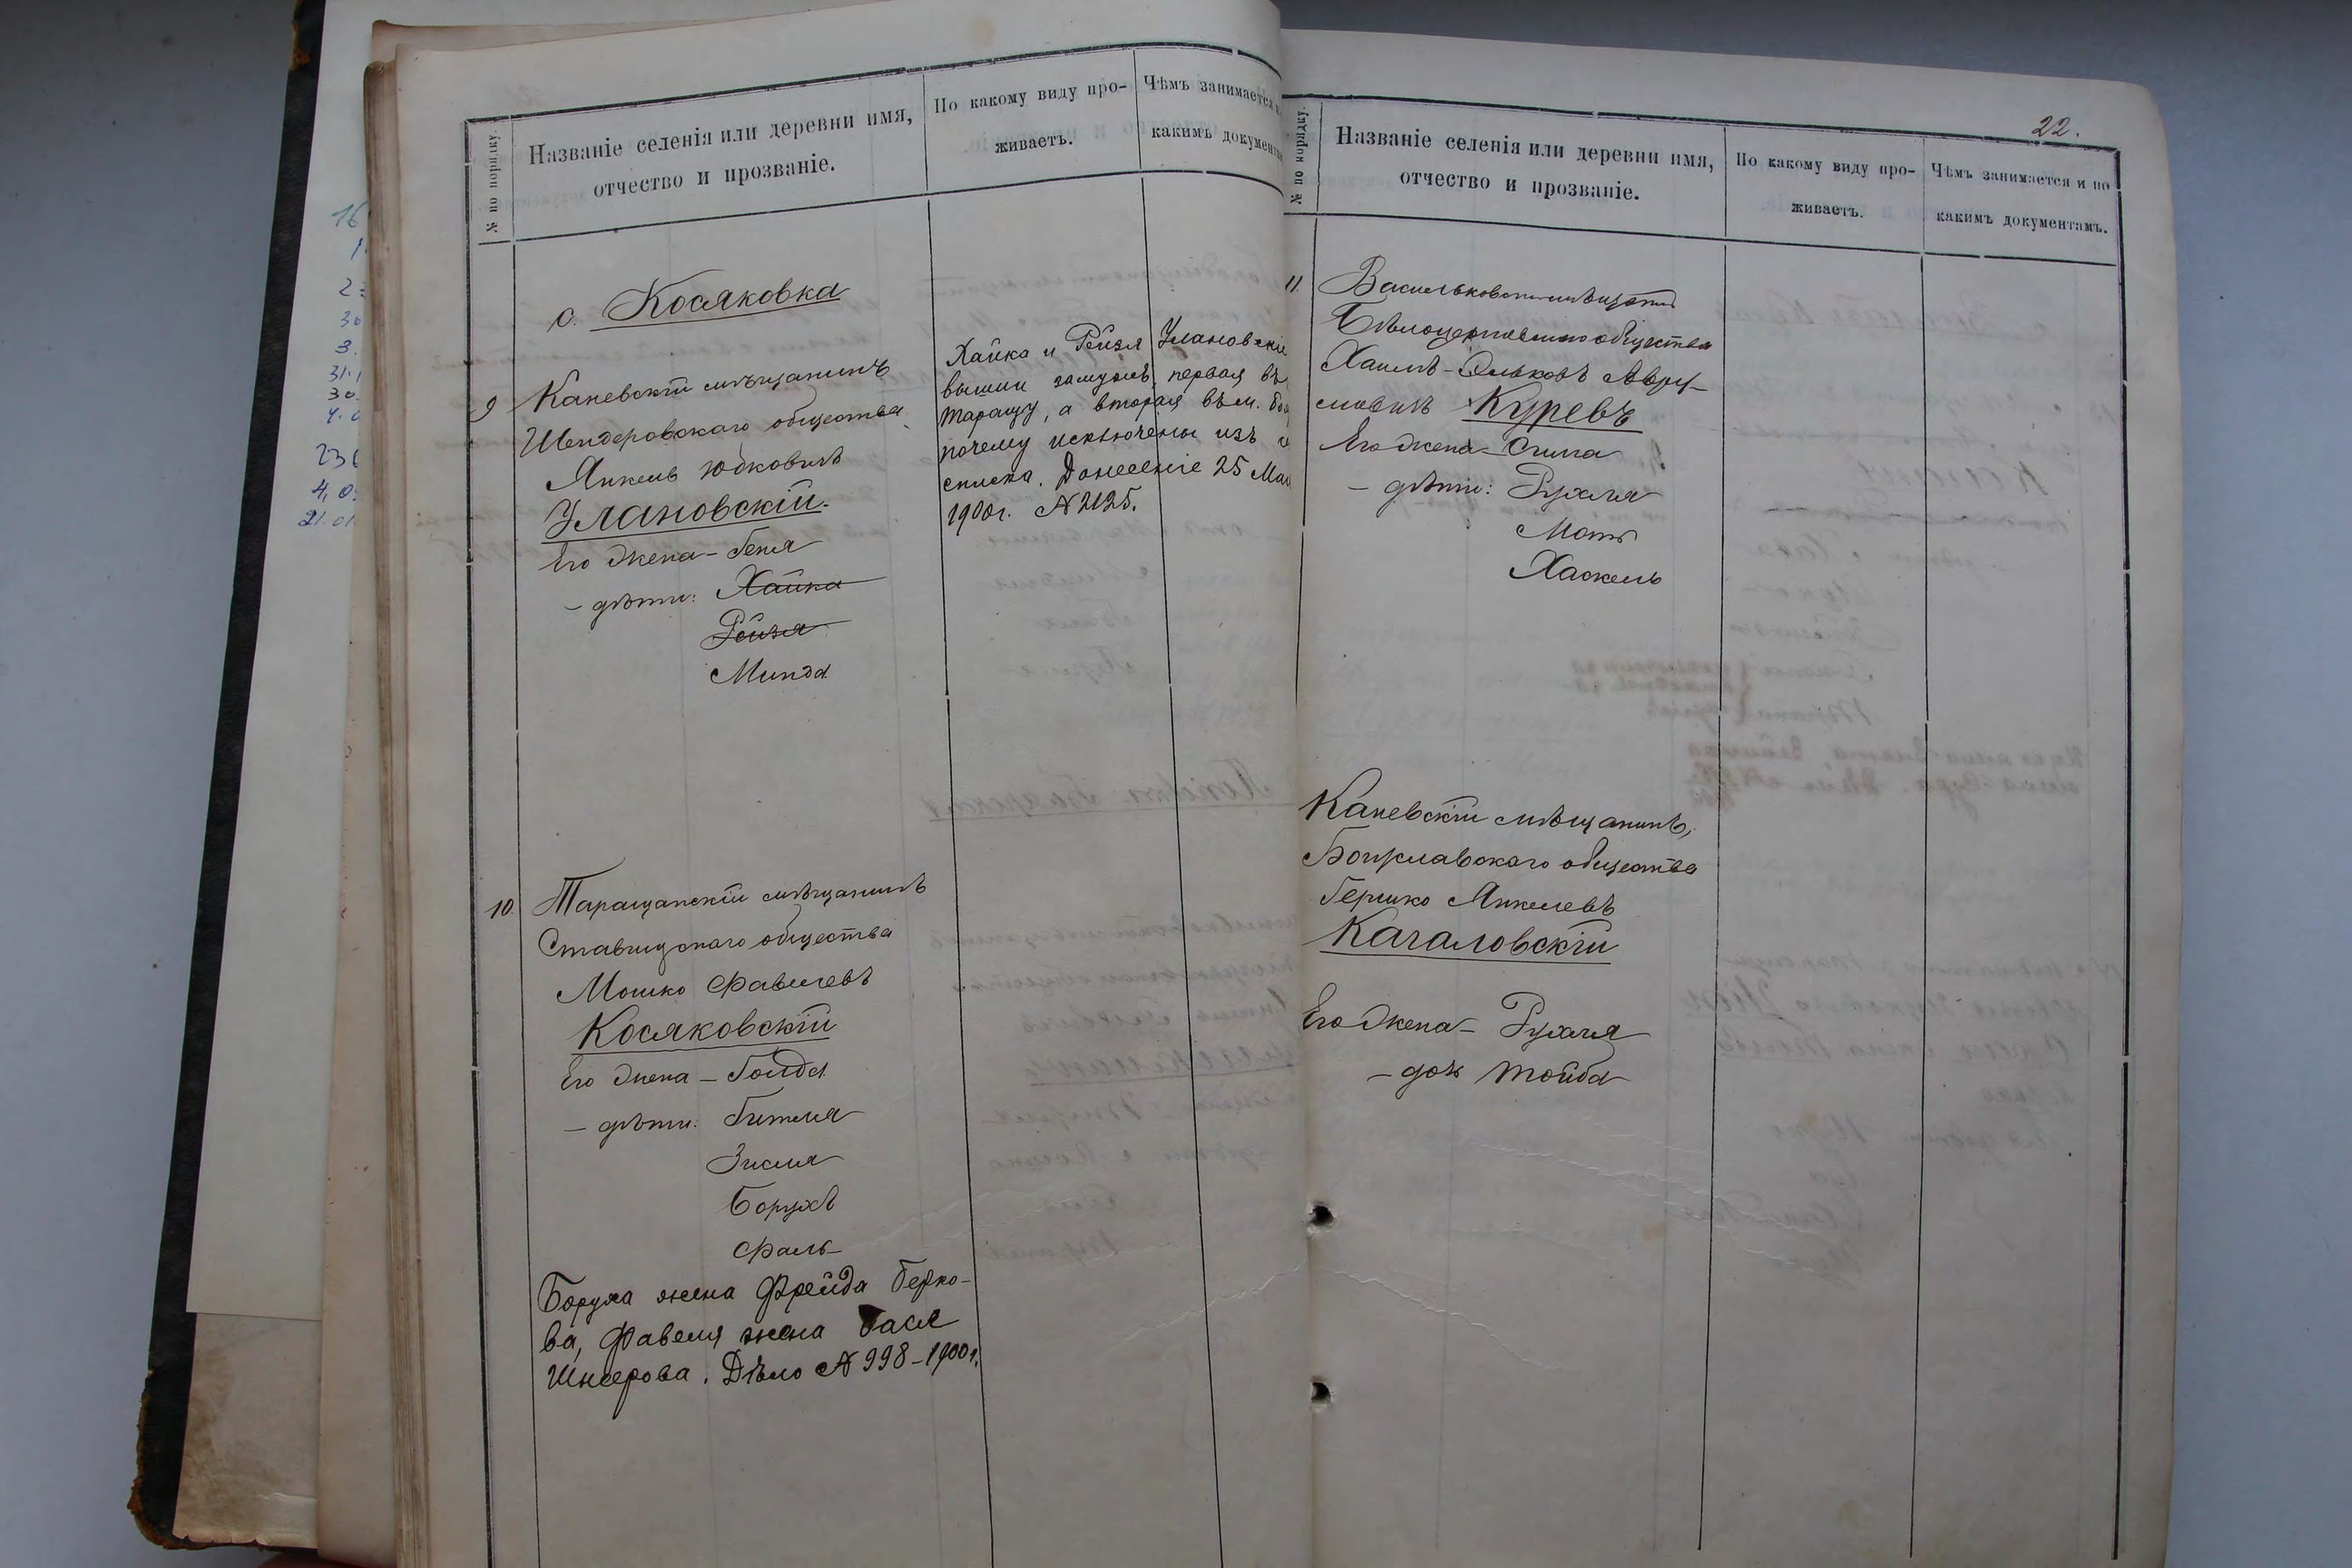 № по порядку.
Названіе селенія или деревни имя,
отчество и прозваніе.
По какому виду про-
живаетъ.
Чѣмъ занимается
какимъ документ
с. Косяковка
9 Каневскій мѣщанинъ
Шендеровскаго общества
Янкель Юдковичъ
Улановскій.
Его жена - Геня
- дѣти: Хайка
Рейзя
Минда
Хайка и Рейзя Улановскіе
вышли замужъ, первая въ
Таращу, а вторая въ м.
почему исключены изъ
списка. Донесеніе 25 Мая
1900г. №2125.
10 Таращанскій мѣщанинъ
Ставищскаго общества
Мошко Фавелевъ
Косяковскій
Его жена - Гольда
- дѣти: Гитля
Зисля
Борухъ
Фаль
Боруха жена Фрейда Берко-
ва, Фавеля жена Бася
Шнеерова. Дѣло №998-1900г.
22.
№ по порядку.
Названіе селенія или деревни имя,
отчество и прозваніе.
По какому виду про-
живаетъ.
Чѣмъ занимается и по
какимъ документамъ.
11. Васильковскій мѣщанинъ
Бѣлоцерковскаго общества
Хаимъ-Эльковъ Авру-
мовичъ Куревъ
Его жена - Сима
- дѣти: Рухля
Мотя
Хаскель
Каневскій мѣщанинъ,
Богуславскаго общества
Гершко Янкелевъ
Качаловскій
Его жена - Рухля
- дочь Тойба